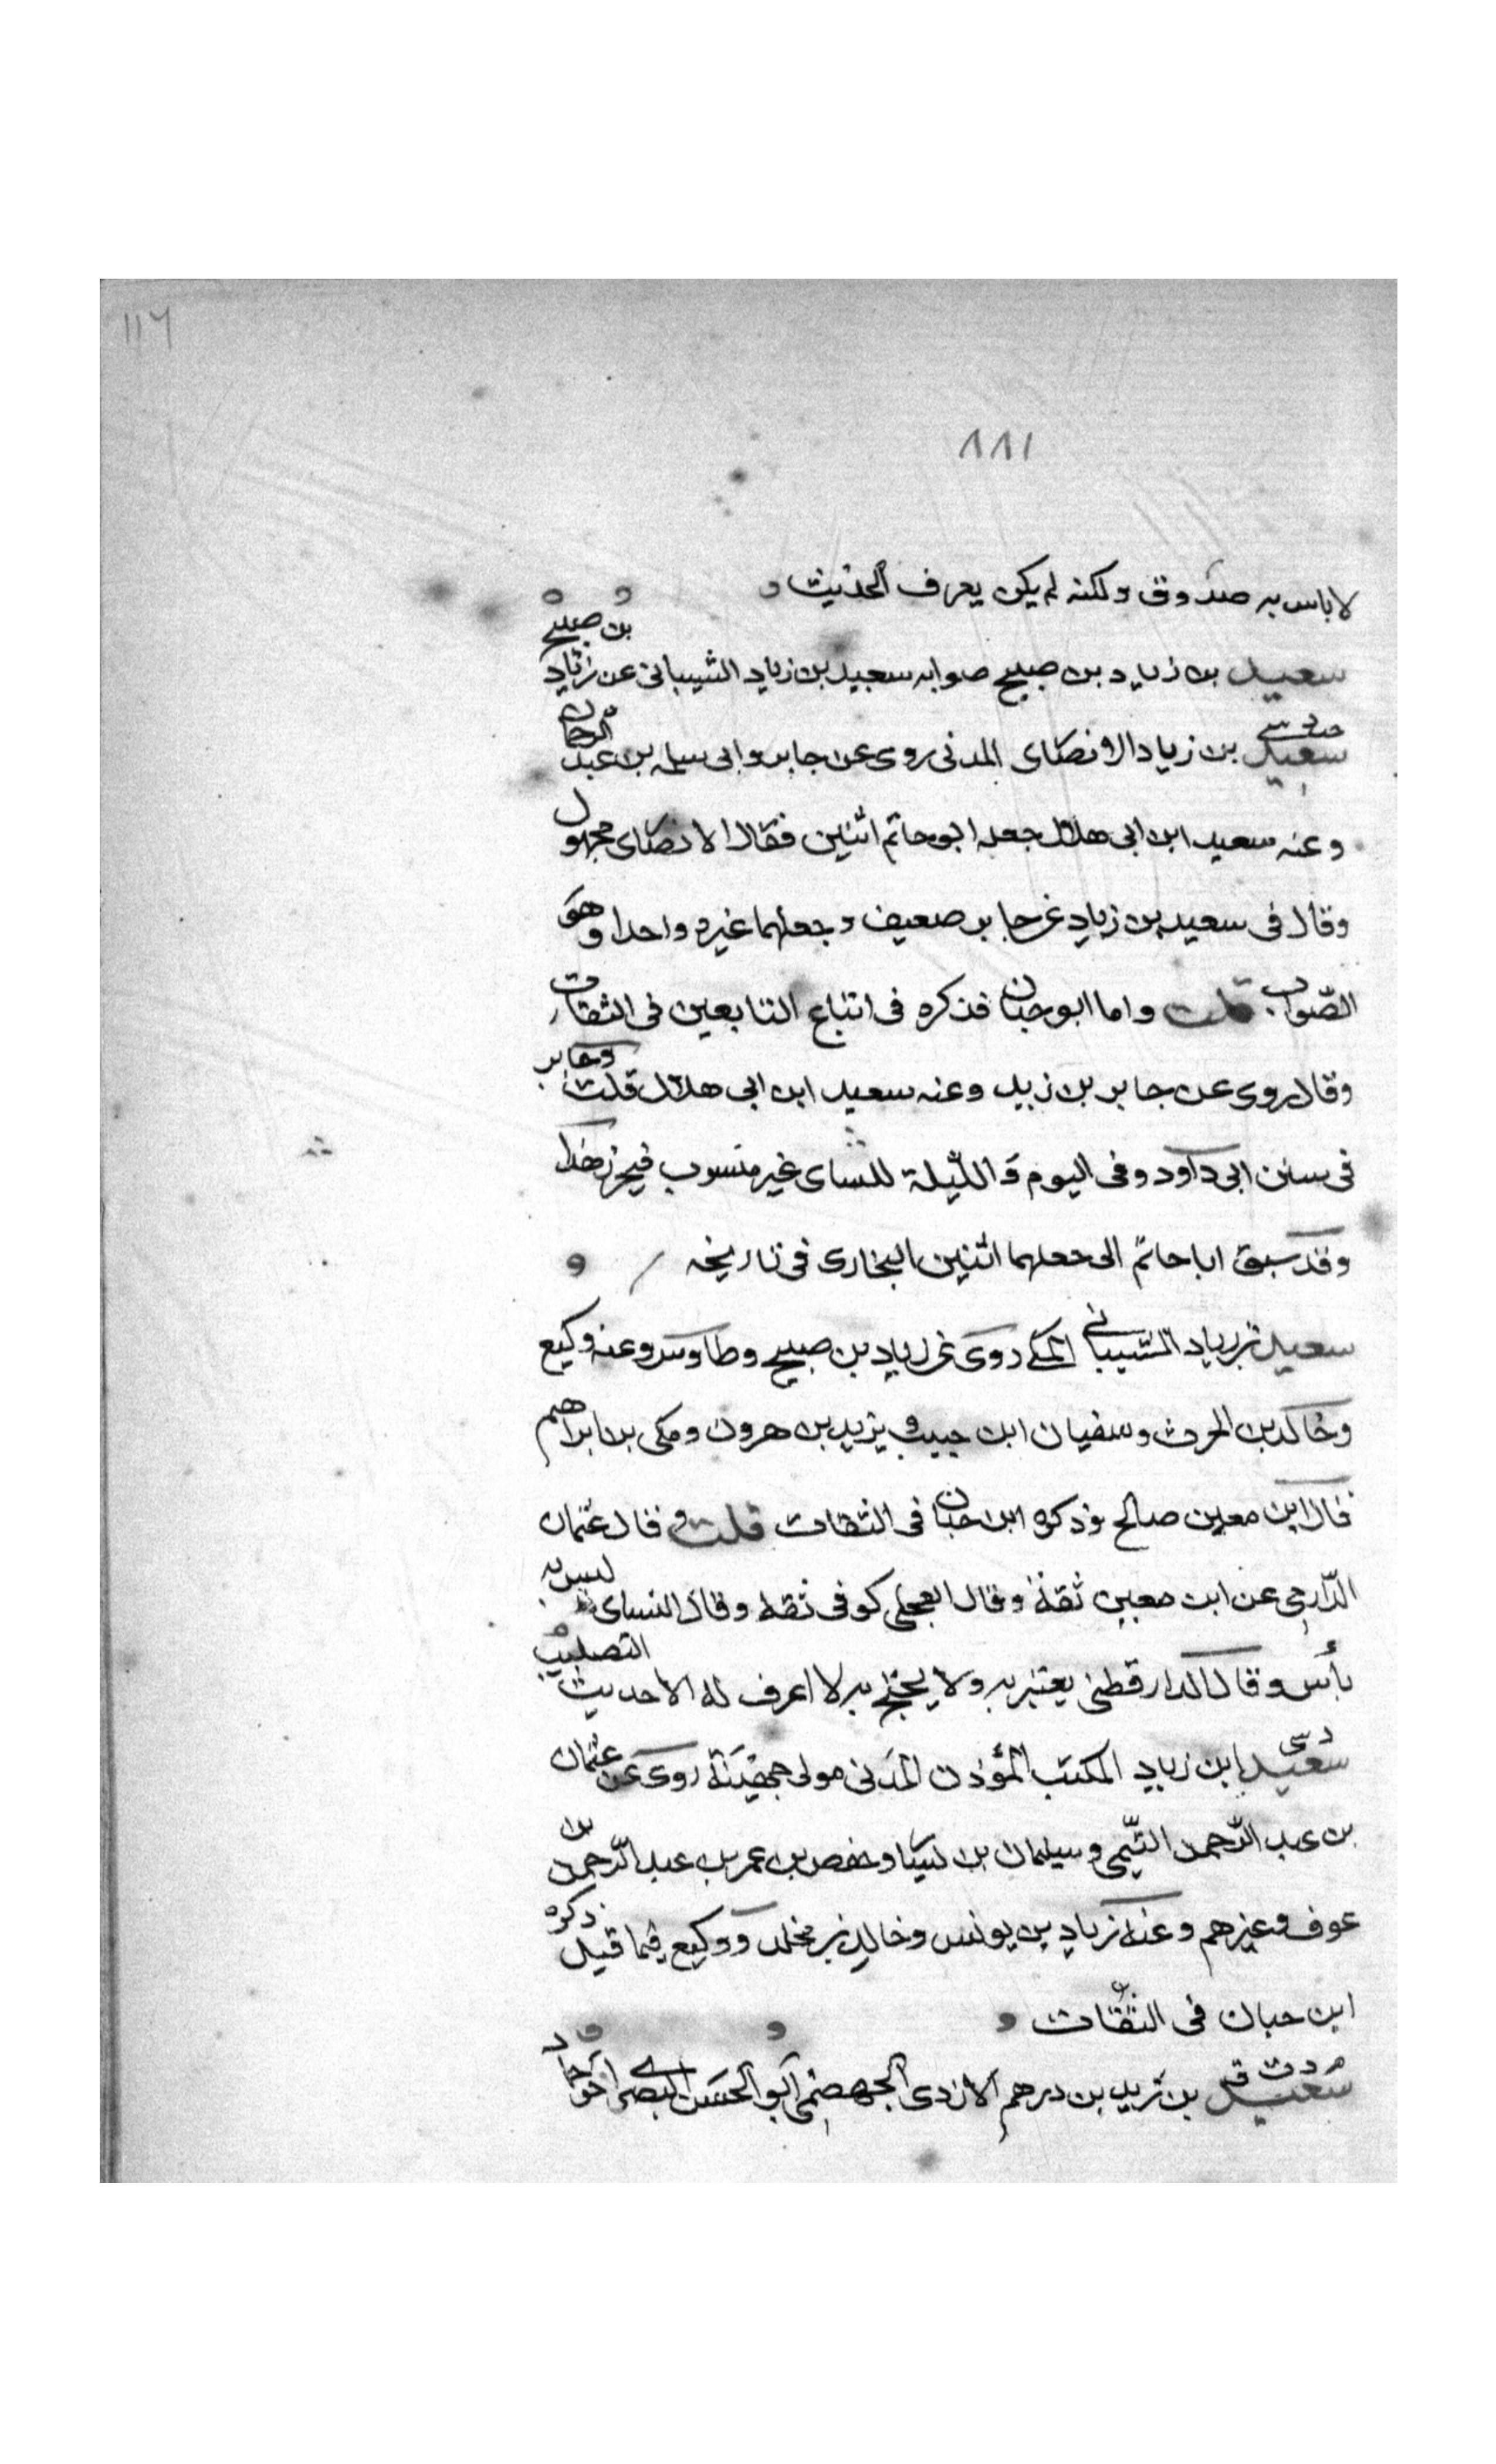 ١١٦
٨٨١
لاباس به صدوق ولكنه لم يكن يعرف الحديث
سعيد بن زياد بن صبيح صوابه سعيد بن زياد الشيباني عن زياد بن صبيح
سعيد بن زياد الانصاى المدنى روى عن جابر وابى سلمه بن عبد الرحمان
وعنه سعيد ابن ابى هلال جعله ابو حاتم اثنين فقال الانصاى مجهول
وقال فى سعيد بن زياد عن جابر صعيف وجعلهما غيره واحدا وهو
الصّواب قلت واما ابو حبان فذكره فى اتباع التابعين فى الثقات
وقال روى عن جابر بن زيد وعنه سعيد ابن ابى هلال قلت وجابر
فى سنن ابى داود وفى اليوم و اللّيلة للنساى غير منسوب فيحرز هذا
وقد سبق ابا حاتم الى جعلهما اثنين البخارى فى تاريخه
سعيد بن زياد الشيبانى المكى روى عن زياد بن صبيح وطاوس وعنه وكيع
وخالد بن الحرث وسفيان ابن حبيب و يزيد بن هرون ومكى بن ابراهيم
قال ابن معين صالح وذكره ابن حبان فى الثقات قلت وقال عثمان
الدّارمى عن ابن معين ثقة وقال العجلى كوفى ثقه وقال النساى ليس به
بأس وقال الدارقطنى يعتبر به ولا يحتج به لا اعرف له الا حديث التصليب
سعيد ابن زياد المكتب المؤذن المدنى مولى جهينة روى عن عثمان
بن عبد الرّحمن التّيمى وسيلمان بن يسا وحفص بن عمر بن عبد الرّحمن بن
عوف وغيرهم وعنه زياد بن يونس وخالد بن مخلد ووكيع فيما قيل ذكره
ابن حبان فى الثقات
سعيد بن زيد بن درهم الازدى الجهضمى ابو الحسن البصرى اخو حماد